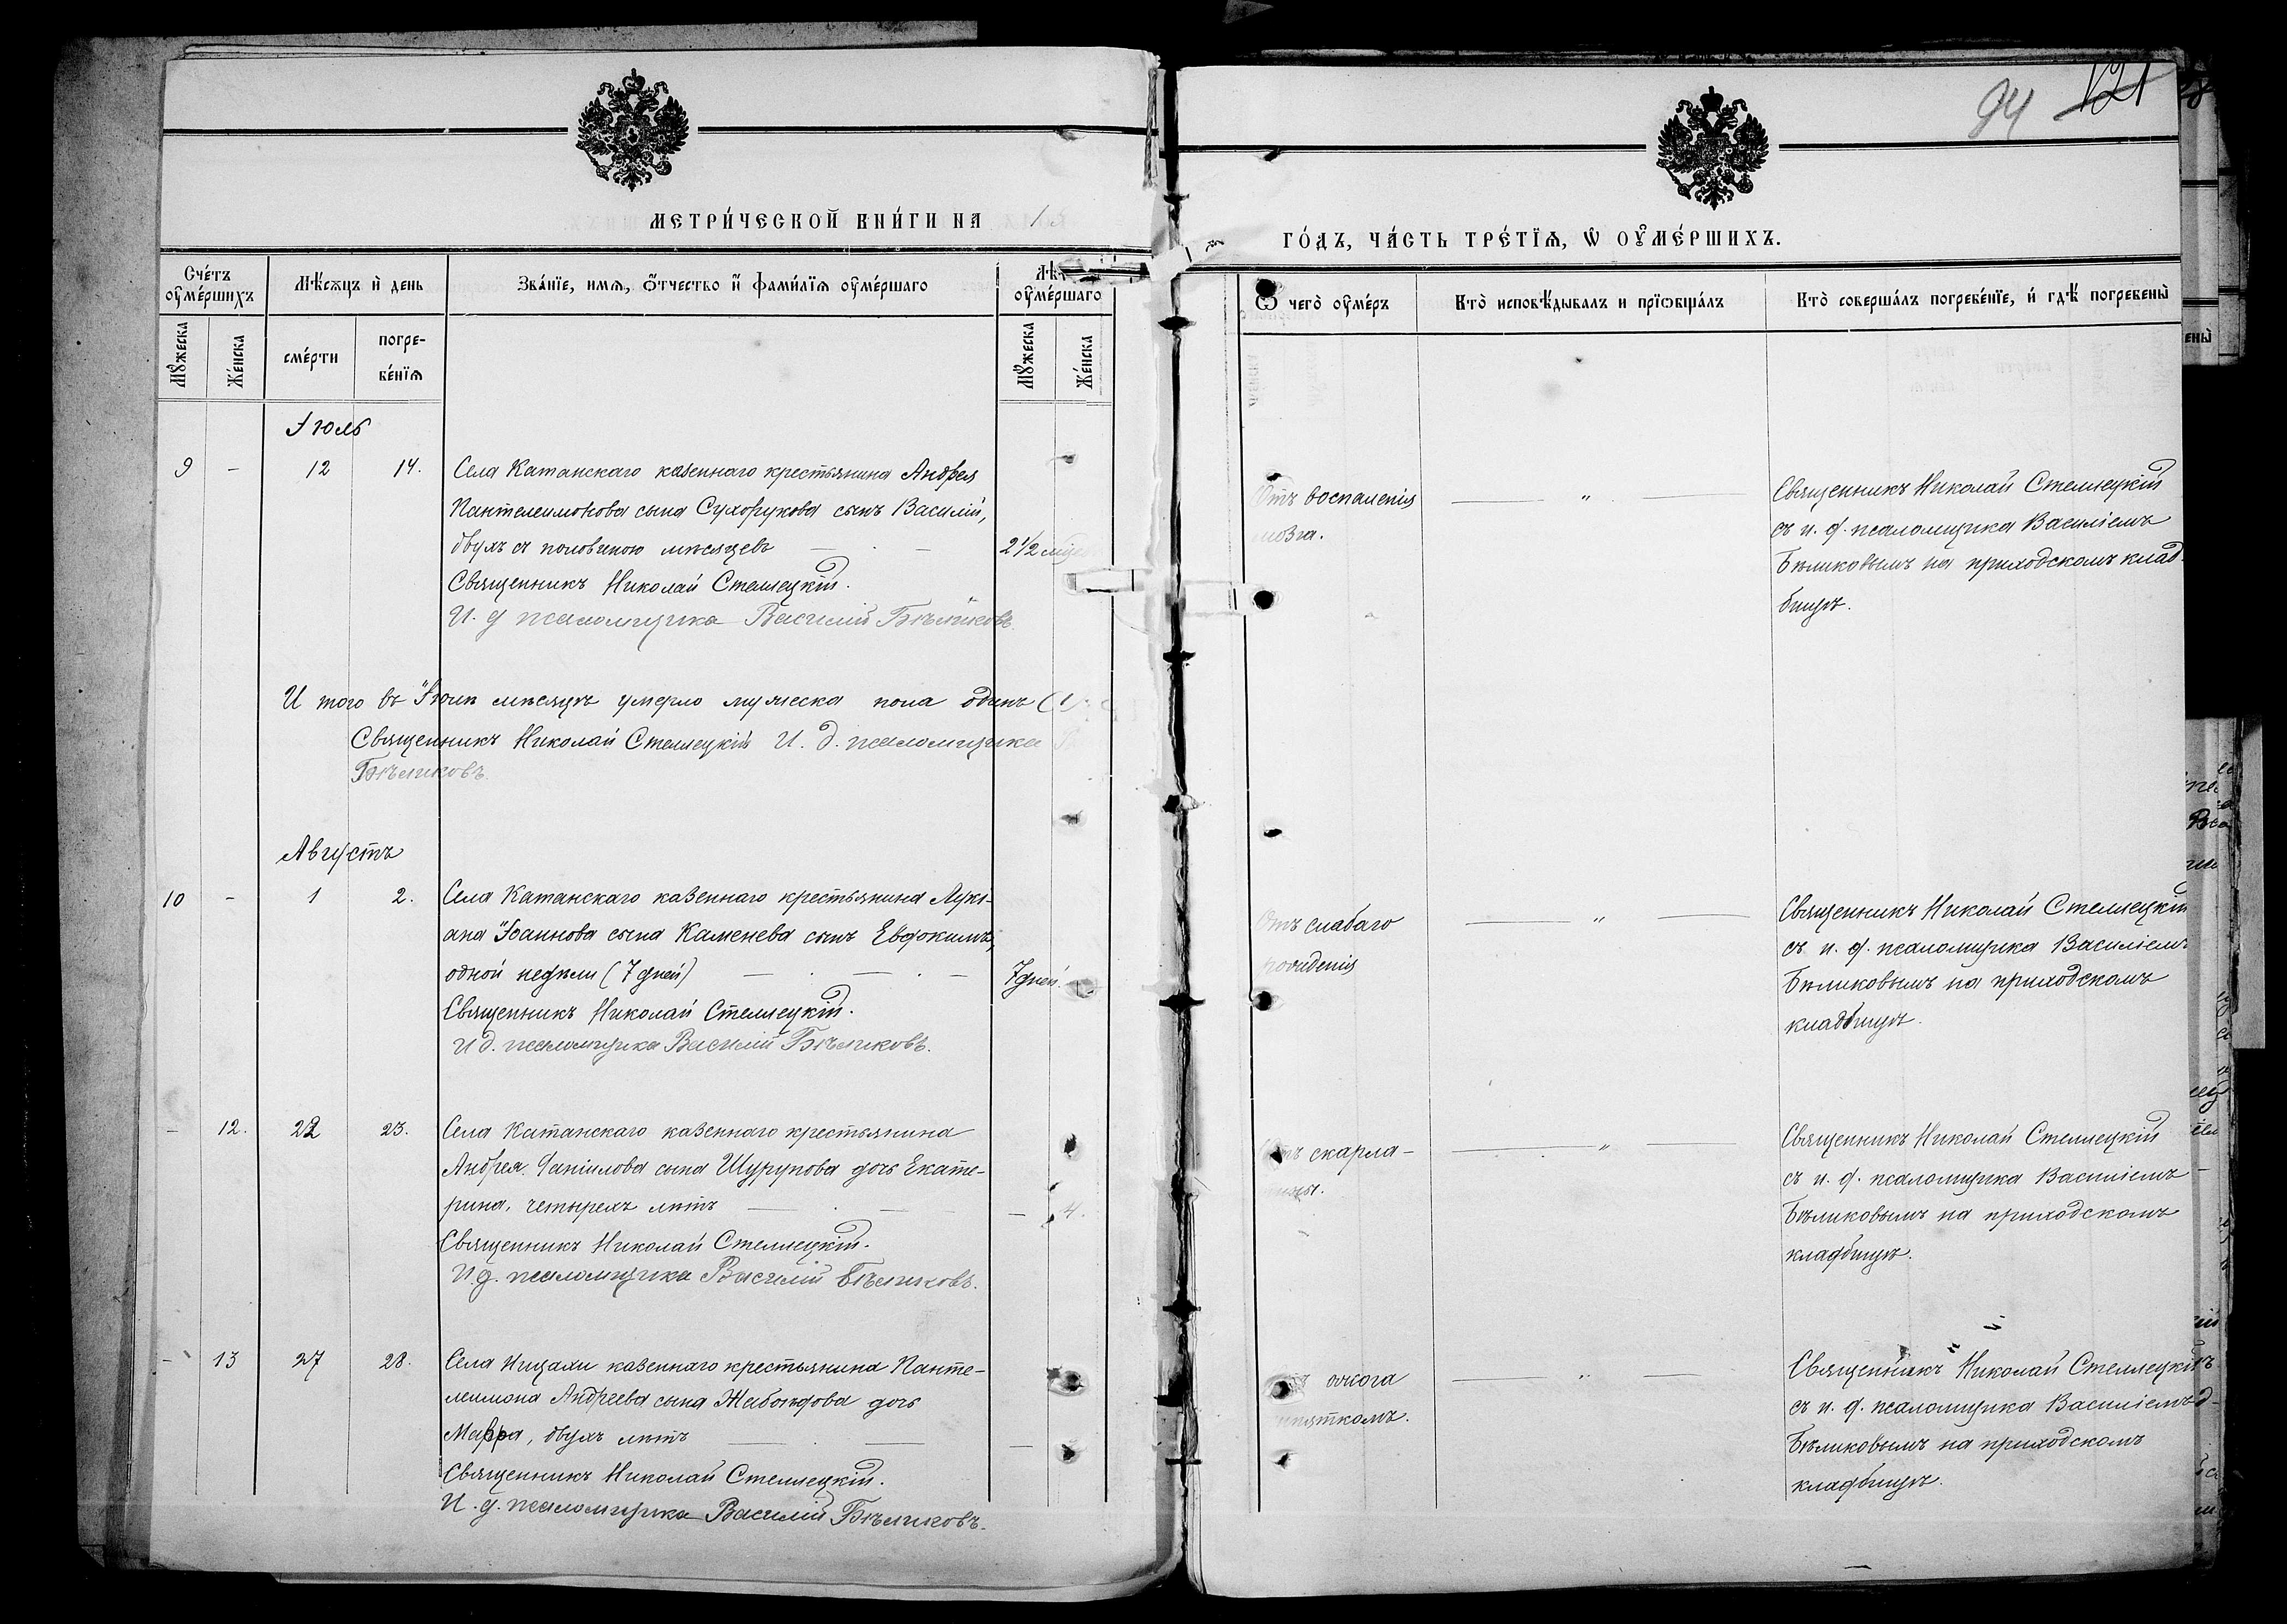 94 121
МЕТРИ́ЧЕСКОЙ КНИ́ГИ НА 1
ГО́ДЪ, ЧА́СТЬ ТРЕ́ТЇѦ, Ѡ ОУМЕ́РШИХЪ.
Сче́тъ оуме́ршихъ
Мѣ́сѧцъ и҆ день
Зва́нїе, имѧ, ѻ҆́тчество и҆ фами́лїѧ оуме́ршаго
Лѣ
оуме́ршаго
Ѿ чегѡ̀ оуме́ръ
Кто̀ исповѣ́дывалъ и прїѡбща́лъ
Кто̀ соверша́лъ погребе́нїе, и҆ гдѣ̀ погребены̀
Мꙋ́жеска
Же́нска
сме́рти
погре-
бе́нїѧ
Мꙋ́жеска
Же́нска
Іюль
9 - 12 14. Села Катанскаго казеннаго крестьянина Андрея
Пантелеимонова сына Сухорукова сынъ Василій,
двухъ съ половиною мѣсяцевъ 2 1/2
Священникъ Николай Стеллецкій.
И. д псаломщика Василій Бѣликовъ.
Отъ воспаленія
мозга.
"
Священникъ Николай Стеллецкій
съ и. д. псаломщика Василіемъ
Бѣликовымъ на приходскомъ клад-
бищѣ.
И того въ Іюлѣ мѣсяцѣ умерло мужеска пола одинъ (1)
Священникъ Николай Стеллецкій И. д. псаломщика
Бѣликовъ.
Августъ
10 - 1 2. Села Катанскаго казеннаго крестьянина Лукі-
ана Іоаннова сына Каменева сынъ Евдокимъ,
одной недѣли (7 дней) 7 дней.
Священникъ Николай Стеллецкій.
И д. псаломщика Василій Бѣликовъ.
Отъ слабаго
"
Священникъ Николай Стеллецкій
съ и. д. псаломщика Василіемъ
Бѣликовымъ на приходскомъ
кладбищѣ.
- 12. 22 23. Села Катанскаго казеннаго крестьянина
Андрея Даніилова сына Шурупова дочь Екате-
рина, четырехъ лѣтъ - 4.
Священникъ Николай Стеллецкій.
И д. псаломщика Василій Бѣликовъ.
скарла-
"
Священникъ Николай Стеллецкій
съ и. д. псаломщика Василіемъ
Бѣликовымъ на приходскомъ
кладбищѣ.
- 13 27 28. Села казеннаго крестьянина Панте-
леимона Андреева сына дочь
Мавра, двухъ лѣтъ -
Священникъ Николай Стеллецкій.
И. д. псаломщика Василій Бѣликовъ.
ожога
"
Священникъ Николай Стеллецкій
съ и. д. псаломщика Василіемъ
Бѣликовымъ на приходскомъ
кладбищѣ.